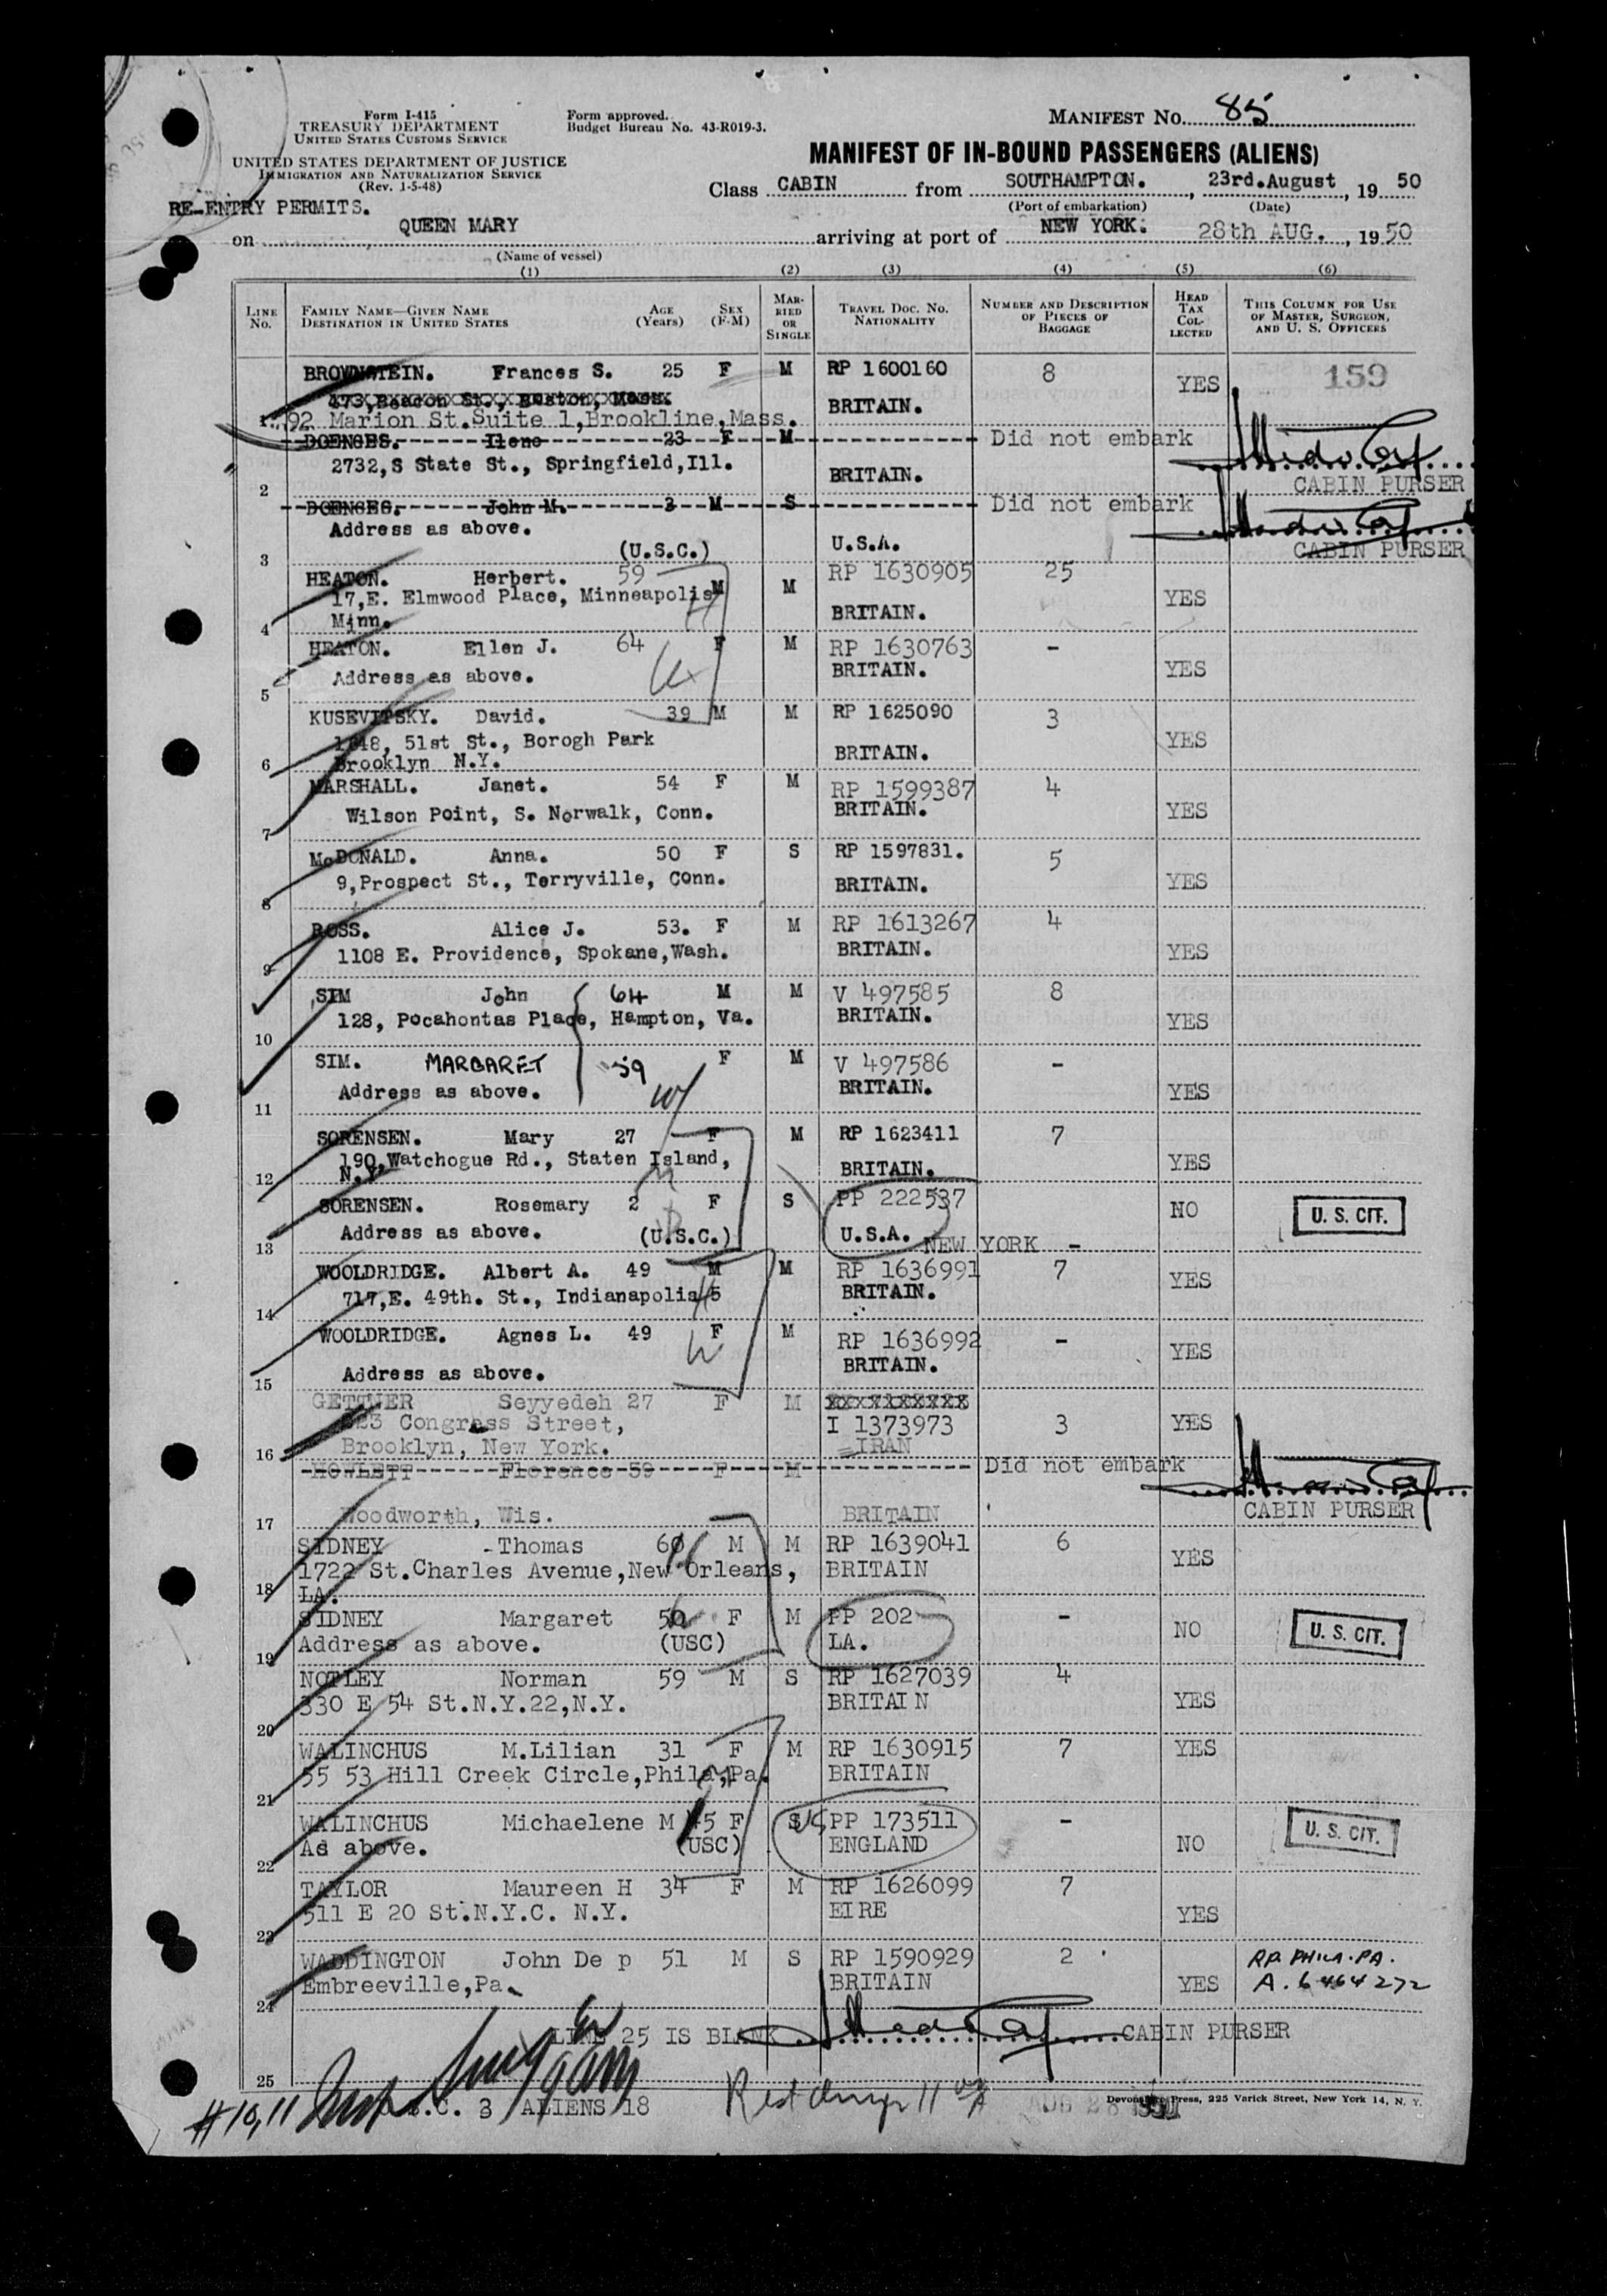 Form I-415
TREASURY DEPARTMENT
UNITED STATES CUSTOMS SERVICE
UNITED STATES DEPARTMENT OF JUSTICE
IMMIGRATION AND NATURALIZATION SERVICE
(Rev. 1-5-48)
Form approved.
Budget Bureau No. 43-R019-3.
MANIFEST NO. 85
MANIFEST OF IN-BOUND PASSENGERS (ALIENS)
Class CABIN from SOUTHAMPTON. , 23rd.August , 19 50
(Port of embarkation) (Date)
RE-ENTRY PERMITS.
on QUEEN MARY arriving at port of NEW YORK. 28th AUG. , 19 50
(Name of vessel)
(1) (2) (3) (4) (5) (6)
LINE NO. FAMILY NAME—GIVEN NAME DESTINATION IN UNITED STATES AGE (YEARS) SEX (F-M) MARRIED OR SINGLE TRAVEL DOC. NO. NATIONALITY NUMBER AND DESCRIPTION OF PIECES OF BAGGAGE HEAD TAX COLLECTED THIS COLUMN FOR USE OF MASTER, SURGEON, AND U. S. OFFICERS
BROWNSTEIN. Frances S. 25 F M RP 1600160 8 YES 159
473,Beacon St., Boston, Mass.
1 92 Marion St.Suite 1,Brookline,Mass. BRITAIN.
DOENGES. Ilene 23 F M Did not embark
2732,S State St., Springfield,Ill. BRITAIN.
2 CABIN PURSER
DOENGES. John M. 3 M S Did not embark
Address as above.
3 (U.S.C.) U.S.A. CABIN PURSER
HEATON. Herbert. 59 M M RP 1630905 25 YES
17,E. Elmwood Place, Minneapolis
4 Minn. BRITAIN.
HEATON. Ellen J. 64 F M RP 1630763 - YES
5 Address as above. BRITAIN.
KUSEVITSKY. David. 39 M M RP 1625090 3 YES
1448, 51st St., Borogh Park BRITAIN.
6 Brooklyn N.Y.
MARSHALL. Janet. 54 F M RP 1599387 4 YES
7 Wilson Point, S. Norwalk, Conn. BRITAIN.
McDONALD. Anna. 50 F S RP 1597831. 5 YES
8 9,Prospect St., Terryville, Conn. BRITAIN.
ROSS. Alice J. 53. F M RP 1613267 4 YES
9 1108 E. Providence, Spokane,Wash. BRITAIN.
SIM John 64 M M V 497585 8 YES
10 128, Pocahontas Place, Hampton, Va. BRITAIN.
SIM. MARGARET 59 F M V 497586 - YES
11 Address as above. BRITAIN.
SORENSEN. Mary 27 F M RP 1623411 7 YES
190,Watchogue Rd., Staten Island,
12 N.Y. BRITAIN.
SORENSEN. Rosemary 2 F S PP 222537 NO U. S. CIT.
13 Address as above. (U.S.C.) U.S.A. NEW YORK -
WOOLDRIDGE. Albert A. 49 M M RP 1636991 7 YES
14 717,E. 49th. St., Indianapolis 5 BRITAIN.
WOOLDRIDGE. Agnes L. 49 F M RP 1636992 - YES
15 Address as above. BRITAIN.
GETTNER Seyyedeh 27 F M
Congress Street, I 1373973 3 YES
16 Brooklyn, New York. IRAN
HOWLETT Florence 59 F M Did not embark
17 Woodworth, Wis. BRITAIN CABIN PURSER
SIDNEY Thomas 60 M M RP 1639041 6 YES
1722 St.Charles Avenue,New Orleans, BRITAIN
18 LA.
SIDNEY Margaret F M PP 202 - NO U. S. CIT.
19 Address as above. (USC) LA.
NOTLEY Norman 59 M S RP 1627039 4 YES
20 330 E 54 St.N.Y.22,N.Y. BRITAIN
WALINCHUS M.Lilian 31 F M RP 1630915 7 YES
21 55 53 Hill Creek Circle,Phila,Pa. BRITAIN
WALINCHUS Michaelene M 5 F S US PP 173511 - NO U. S. CIT.
22 As above. (USC) ENGLAND
TAYLOR Maureen H 34 F M RP 1626099 7 YES
23 511 E 20 St.N.Y.C. N.Y. EIRE
WADDINGTON John De p 51 M S RP 1590929 2 YES RP. PHILA. PA.
24 Embreeville,Pa. BRITAIN A. 6464272
LINE 25 IS BLANK CABIN PURSER
25
#10,11 C. 3 ALIENS 18
Devonshire Press, 225 Varick Street, New York 14, N. Y.